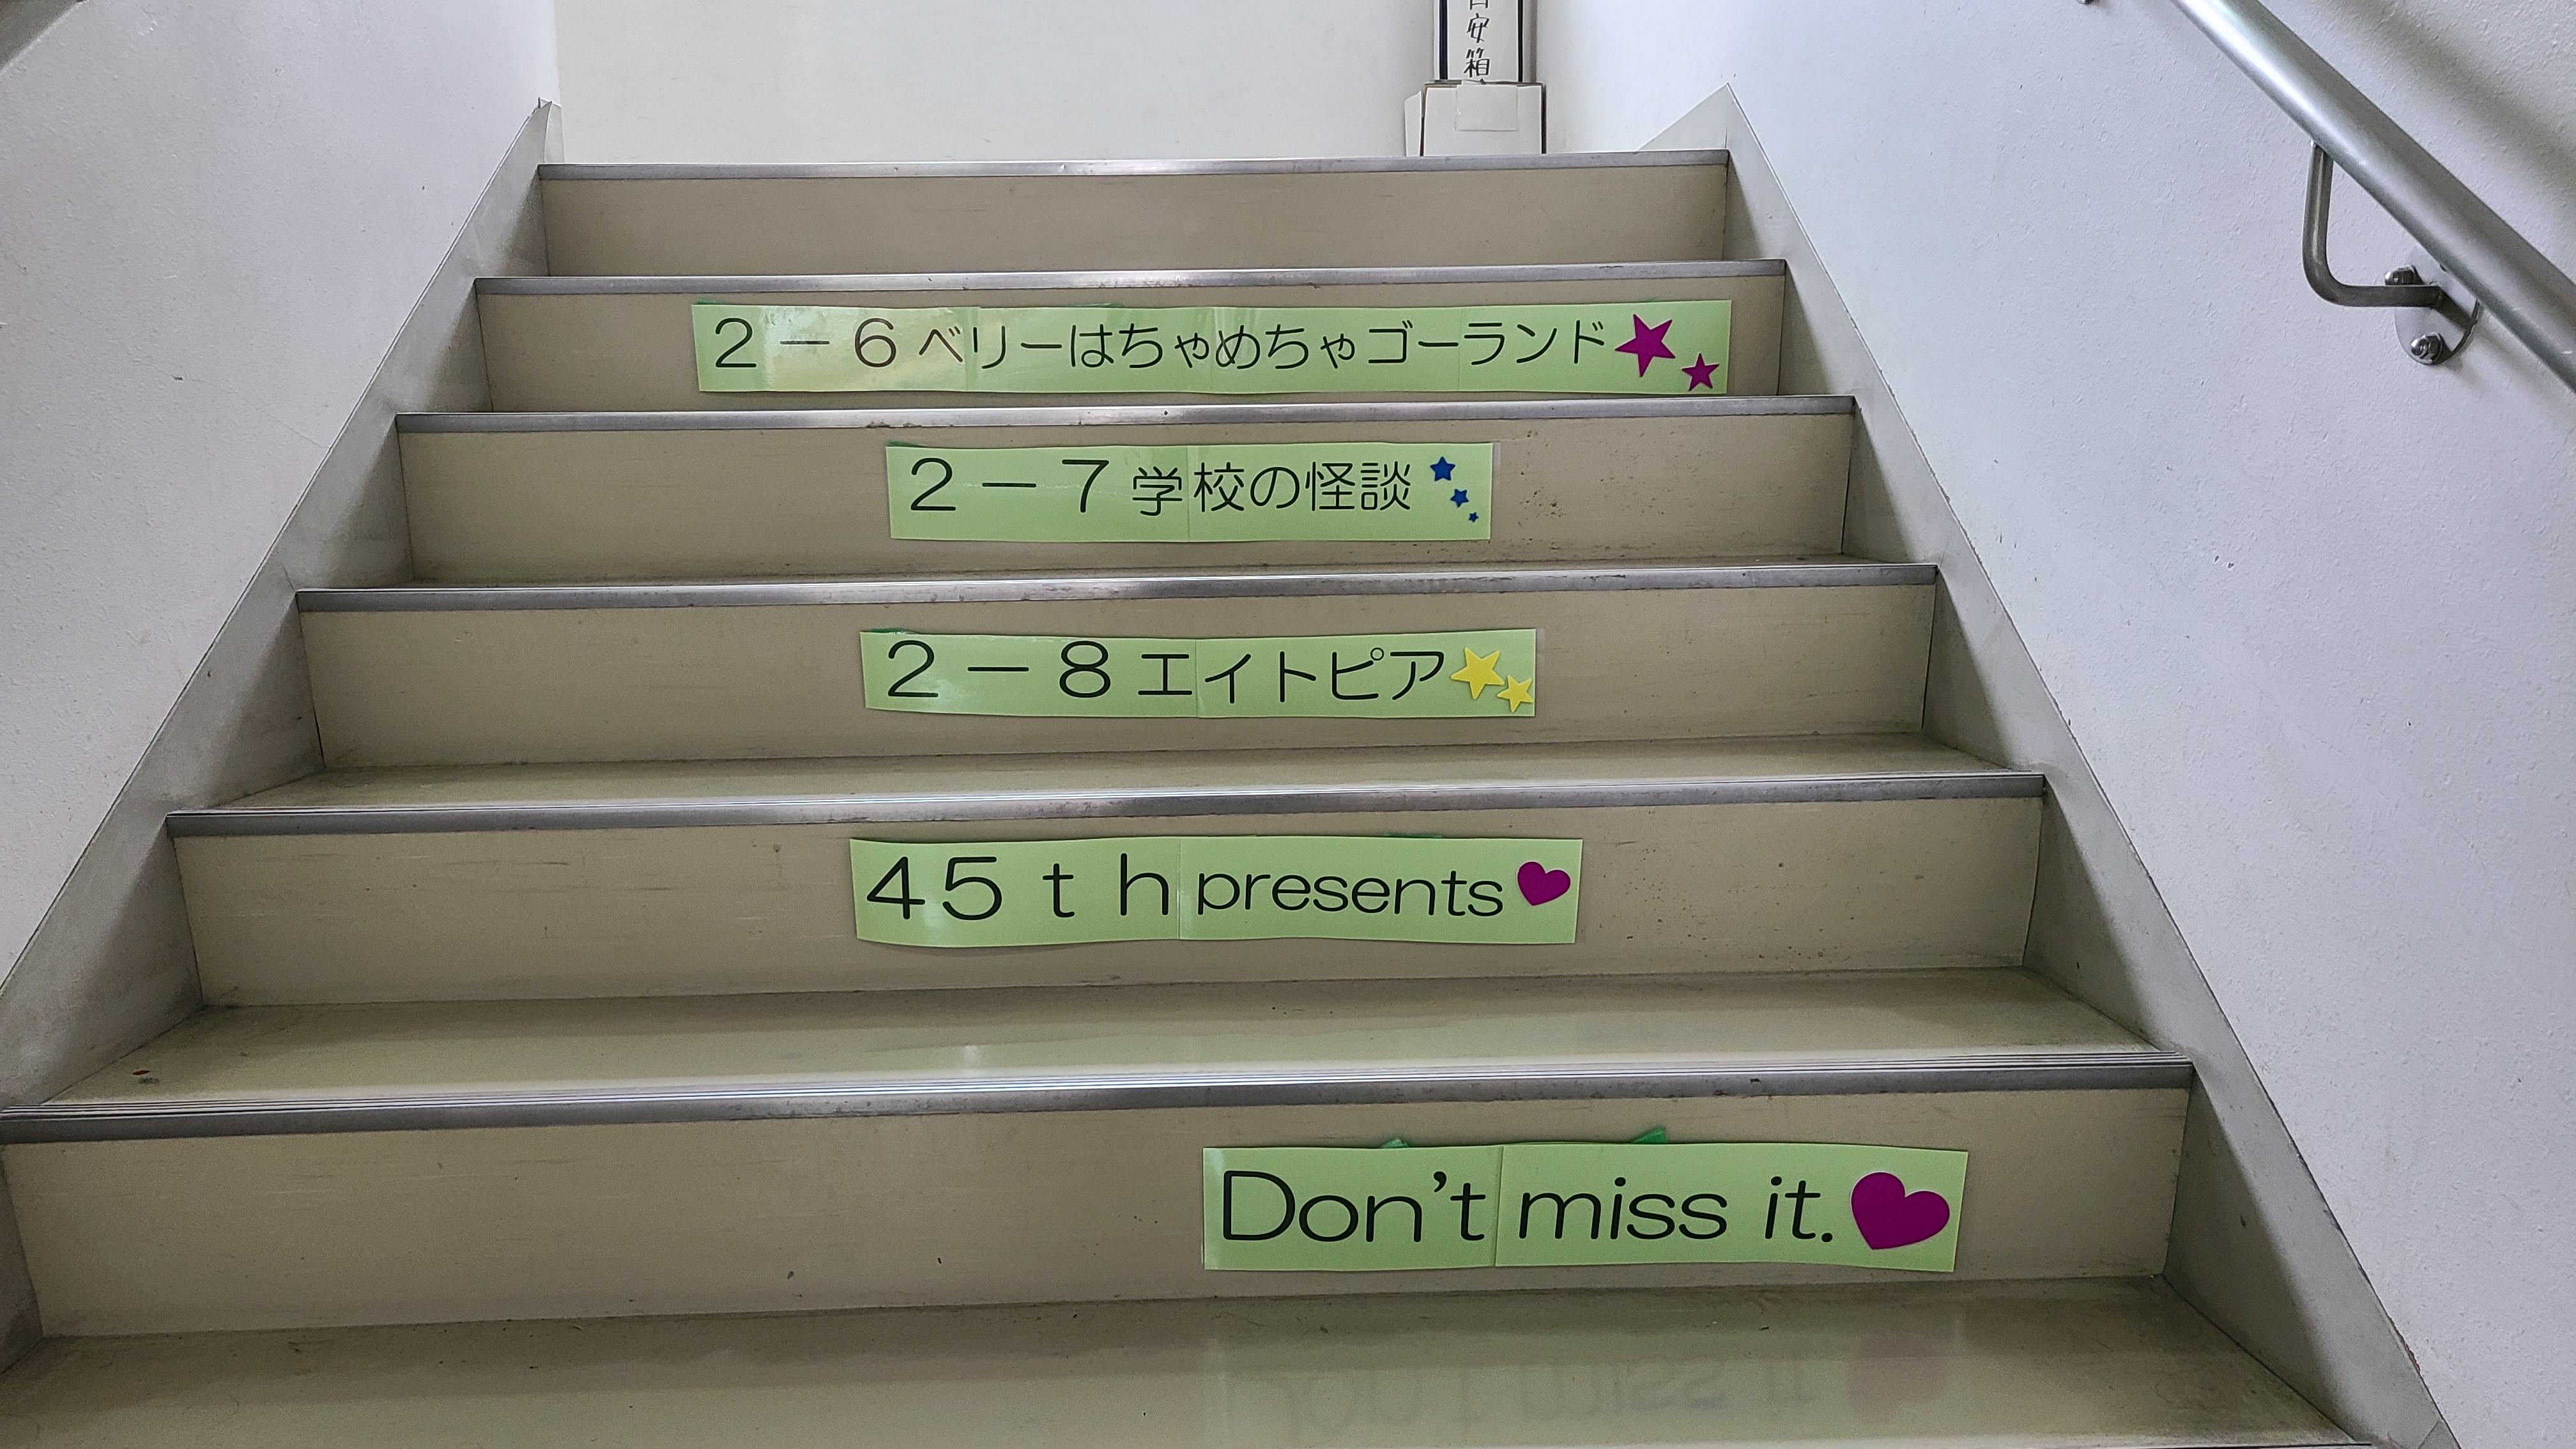 安箱
2－6ベリーはちゃめちゃゴーランド
2－7学校の怪談
2－8エイトピア
45th presents
Don't miss it.